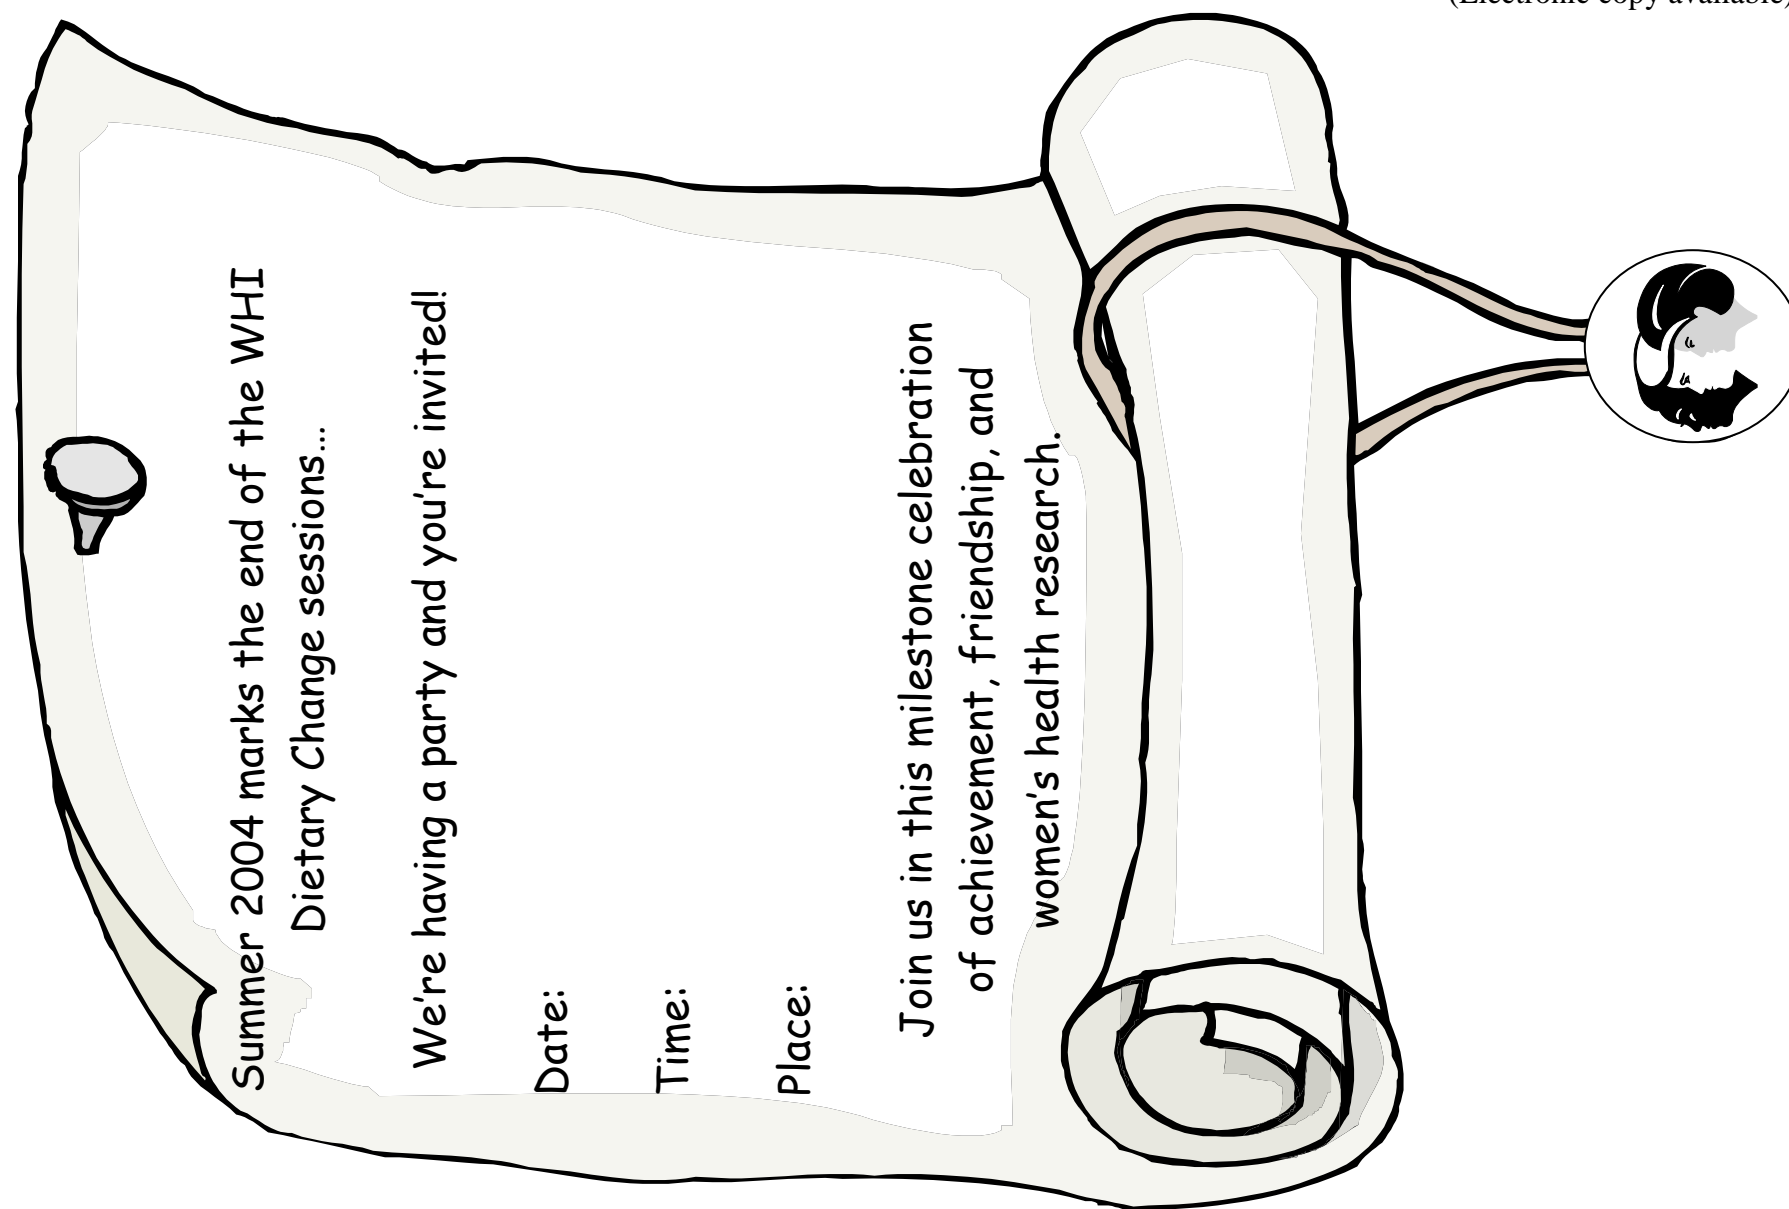 (Electronic copy available)
Summer 2004 marks the end of the WHI
Dietary Change sessions...
We're having a party and you're invited!
Date:
Time:
Place:
Join us in this milestone celebration
of achievement, friendship, and
women's health research.